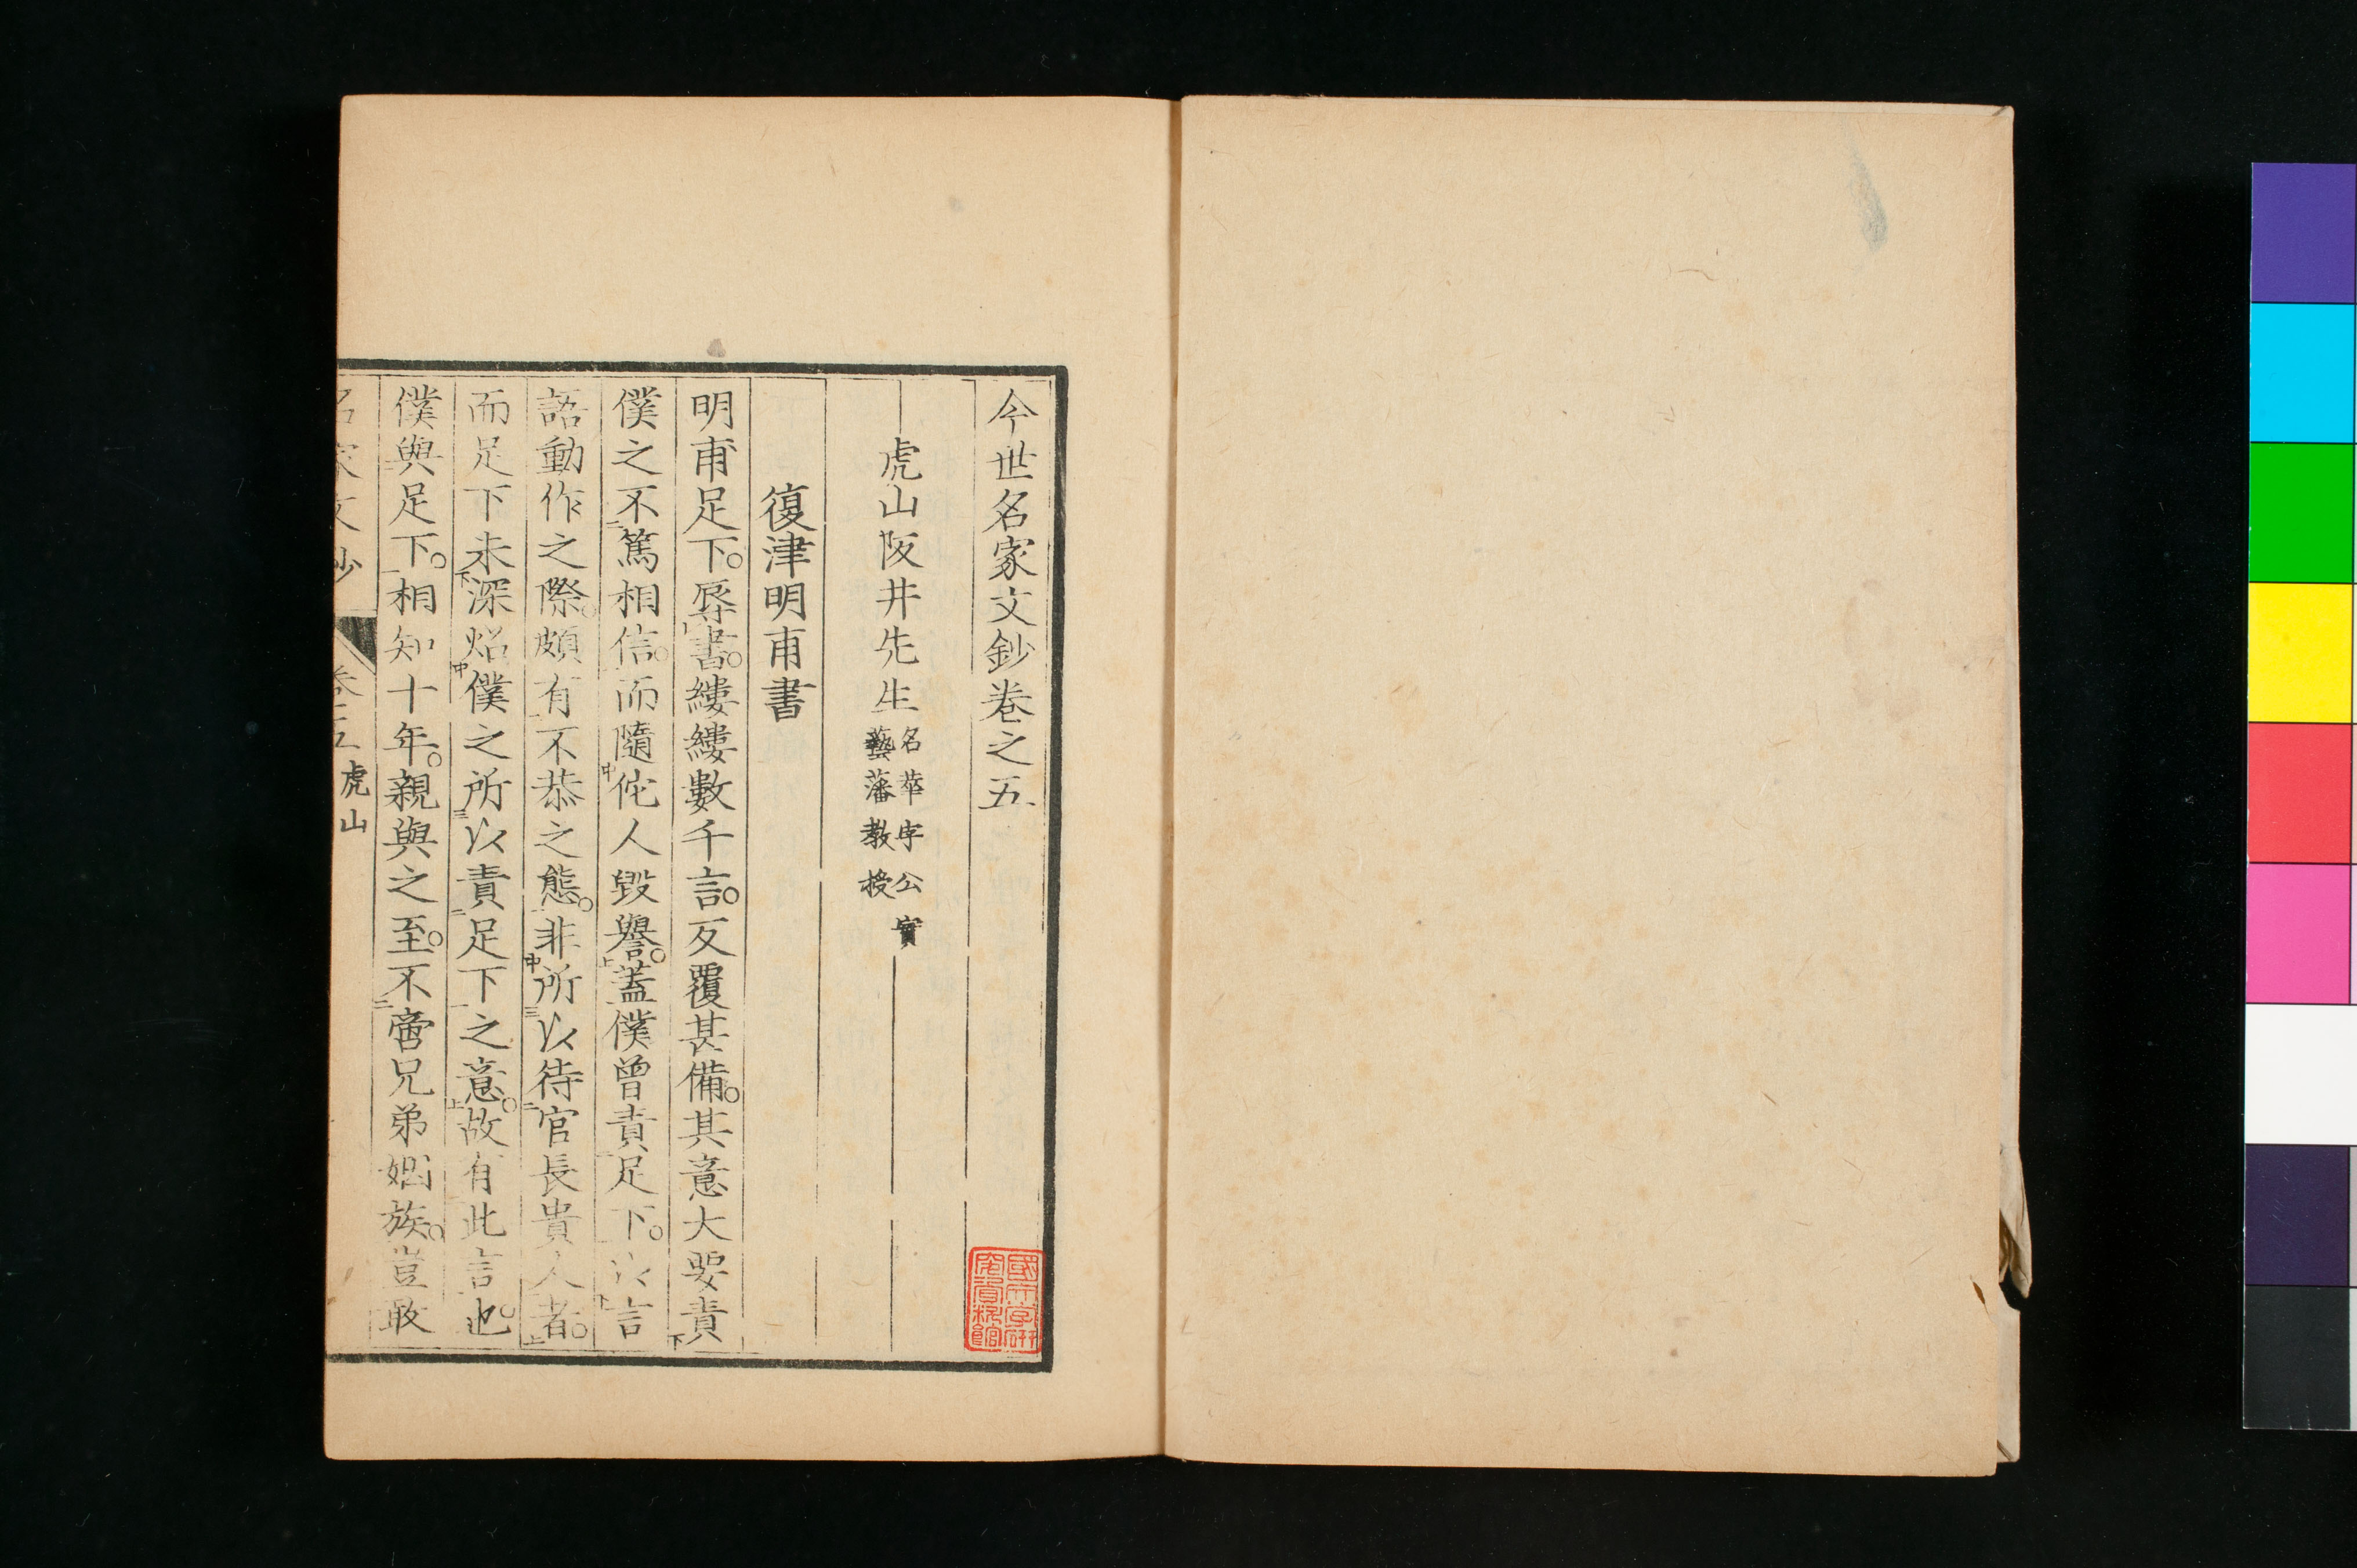 今世名家文鈔卷之五
虎山阪井先生
名華字公實
藝藩教授
復津明甫書
明甫足下。辱書。縷縷數千言。反覆甚備。其意大要責
僕之不篤相信。而隨佗人毀譽。蓋僕曾責足下。以言
語動作之際。頗有不恭之態。非所以待官長貴人者。
而足下未深炤僕之所以責足下之意。故有此言也。
僕與足下。相知十年。親與之至。不啻兄弟姻族。豈敢
名家文鈔
卷五
虎山
國文學研
究資料館